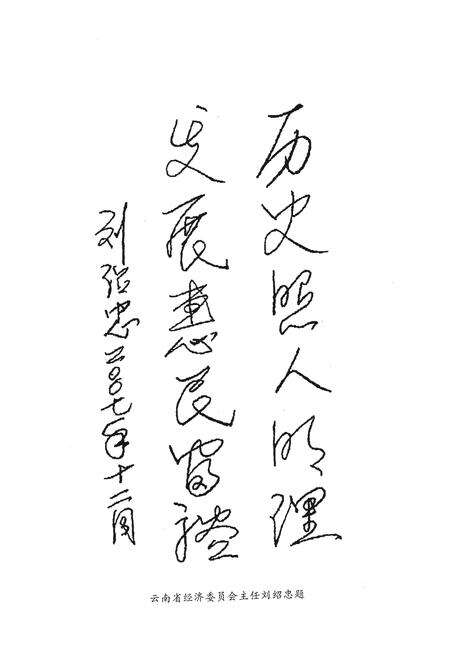 历史照人明理
发展惠民富裕
刘绍忠二〇〇七年十二月
云南省经济委员会主任刘绍忠题